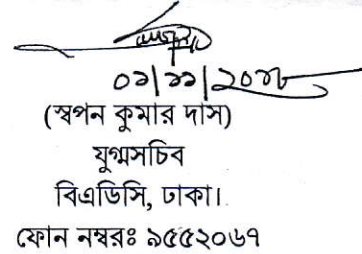 ০১/১১/২০১৮
(স্বপন কুমার দাস)
যুগ্মসচিব
বিএডিসি, ঢাকা।
ফোন নম্বরঃ ৯৫৫২০৬৭